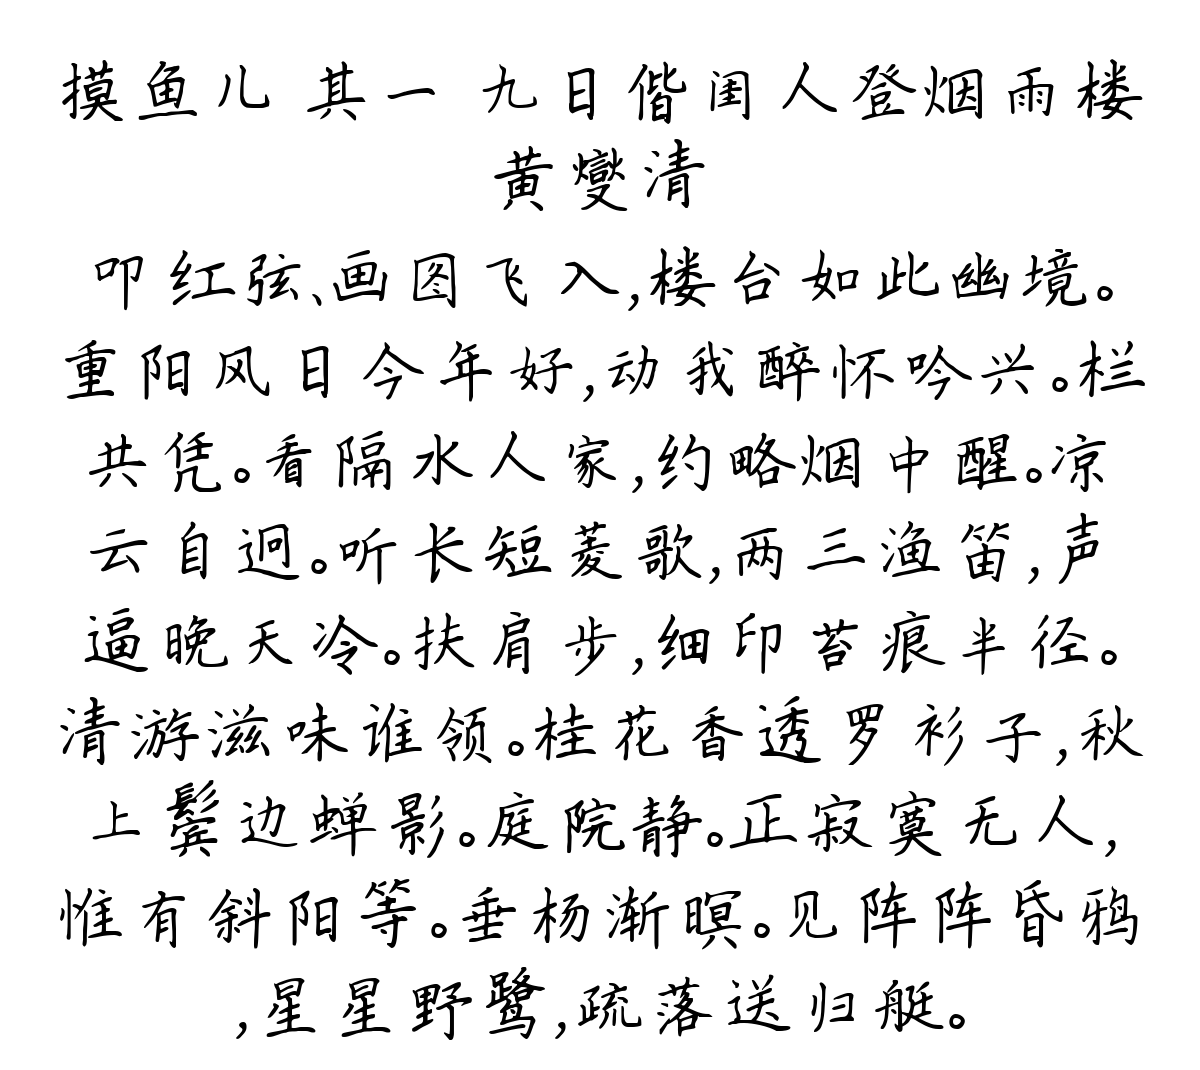 摸鱼儿 其一 九日偕闺人登烟雨楼
黄燮清
叩红弦、画图飞入,楼台如此幽境。
重阳风日今年好,动我醉怀吟兴。栏
共凭。看隔水人家,约略烟中醒。凉
云自迥。听长短菱歌,两三渔笛,声
逼晚天冷。扶肩步,细印苔痕半径。
清游滋味谁领。桂花香透罗衫子,秋
上鬓边蝉影。庭院静。正寂寞无人,
惟有斜阳等。垂杨渐暝。见阵阵昏鸦
,星星野鹭,疏落送归艇。